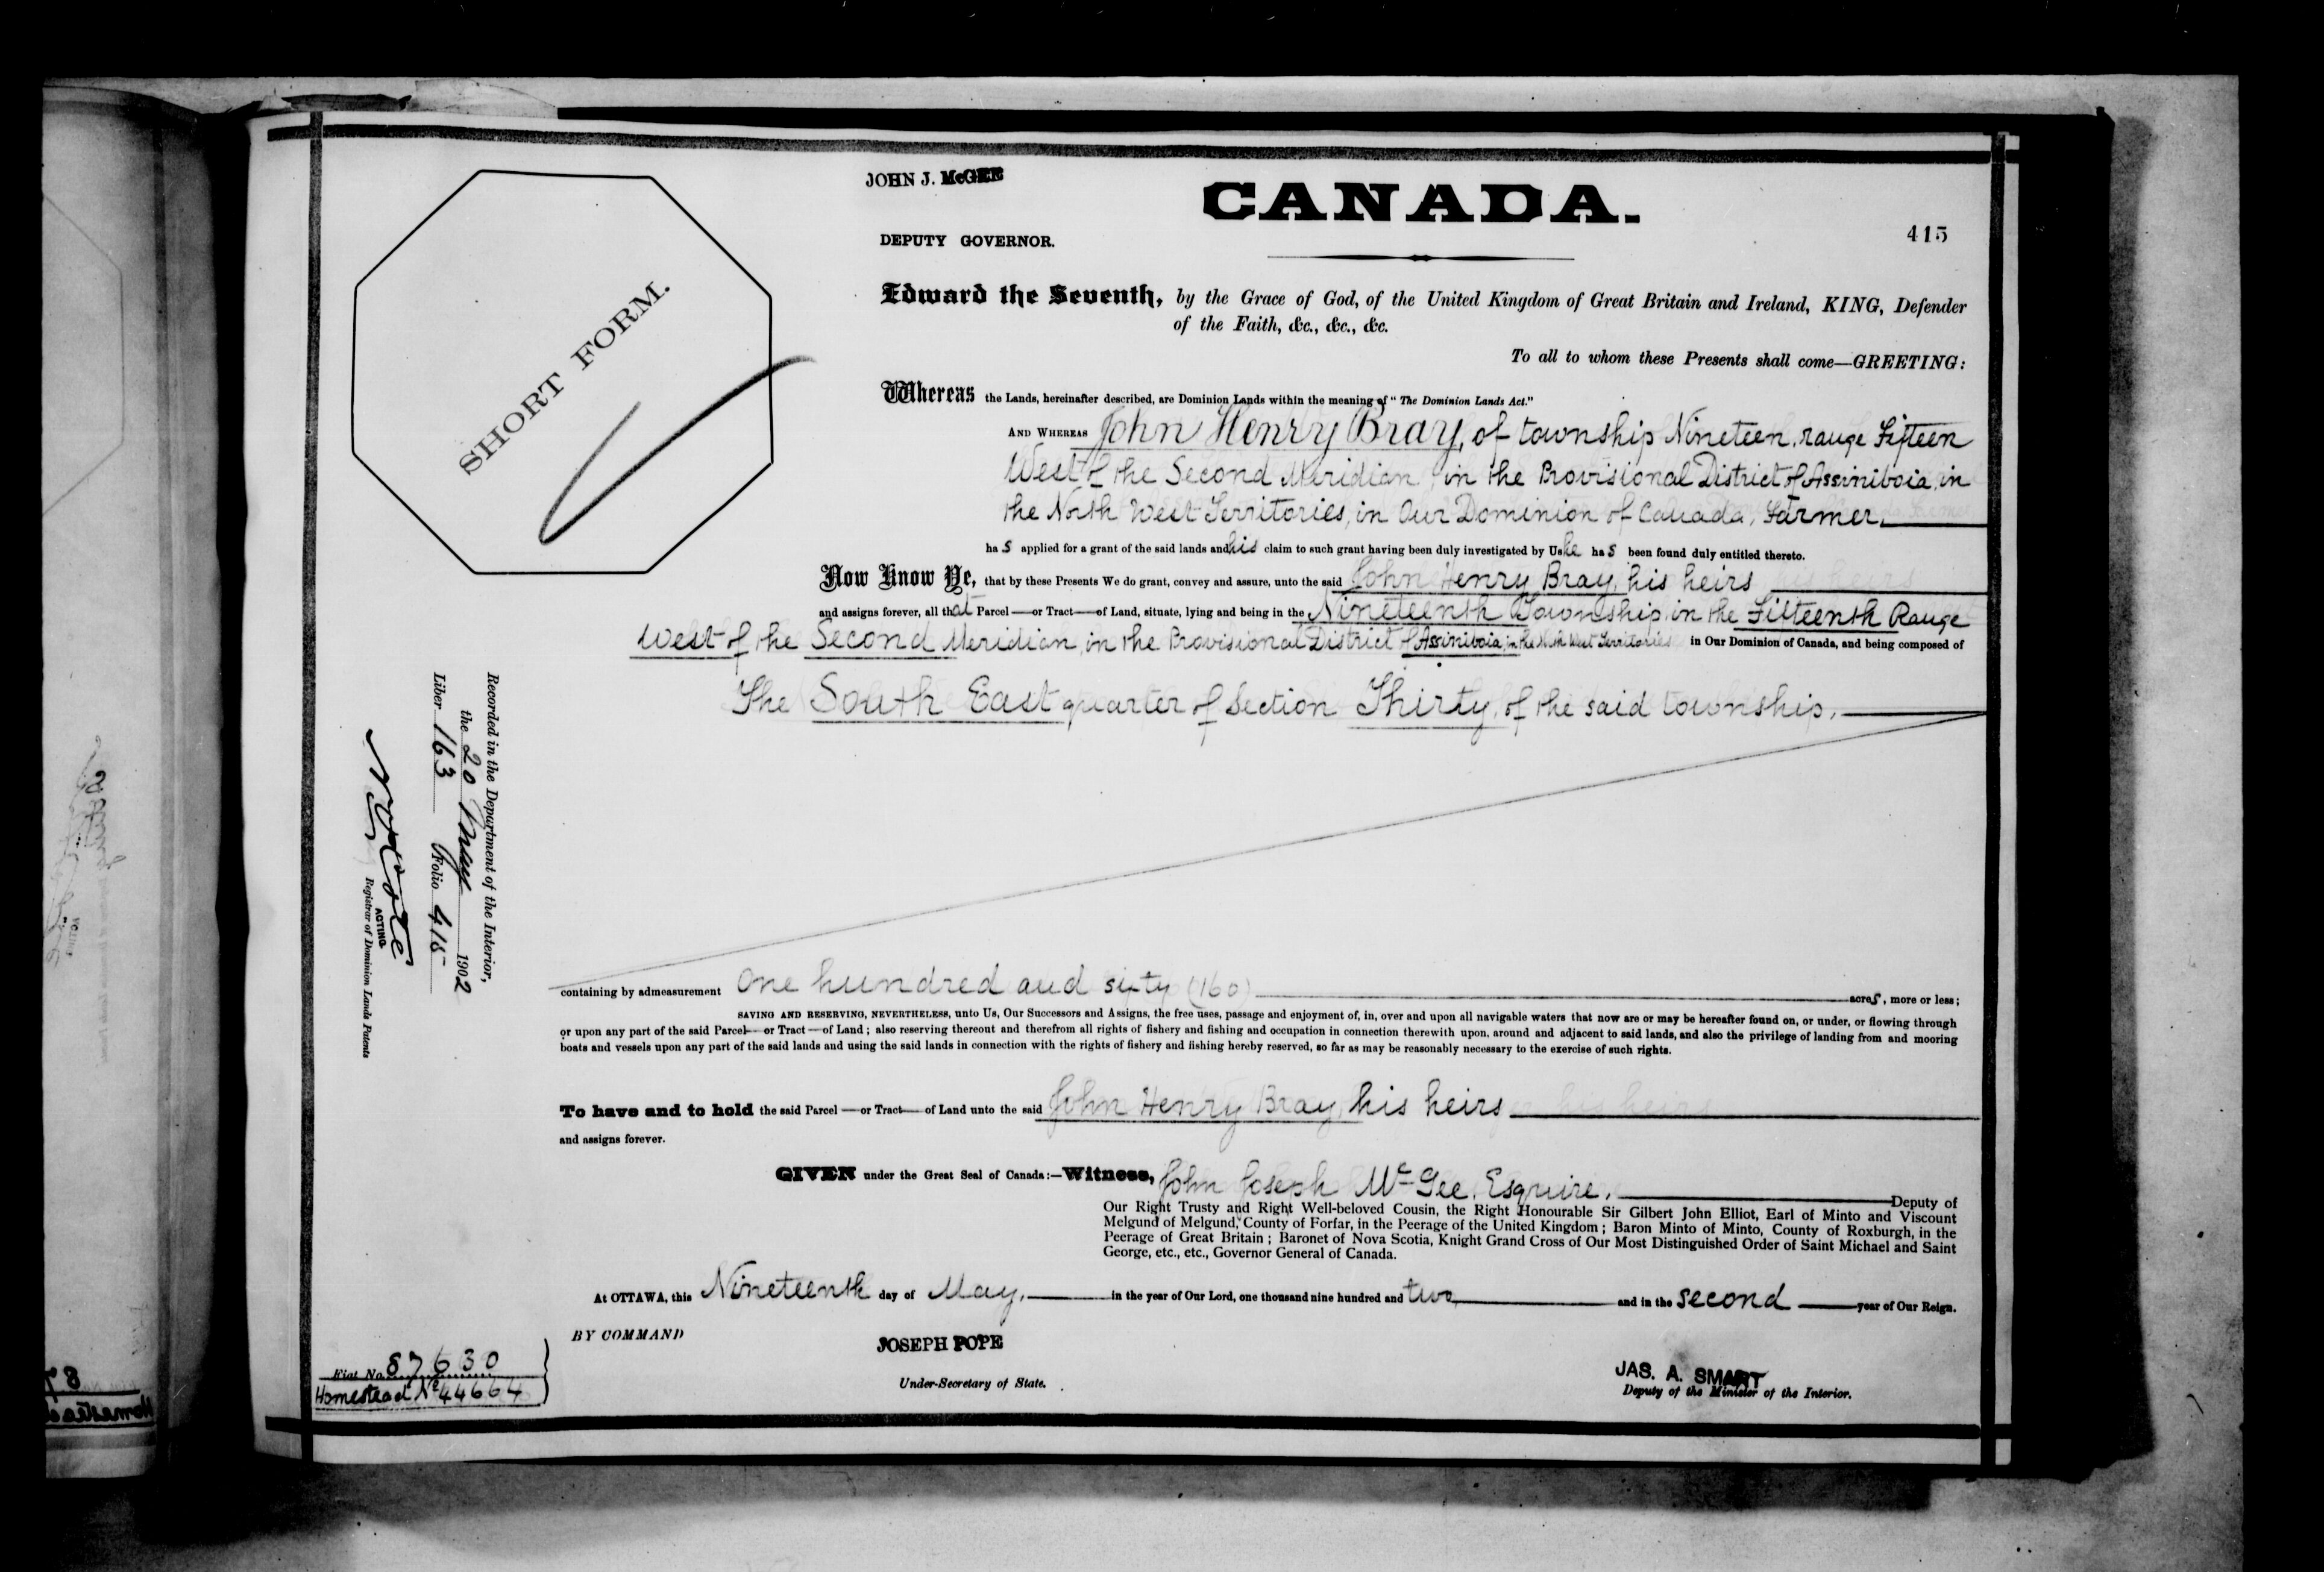 JOHN J. McGEE
CANADA.
DEPUTY GOVERNOR.
415
SHORT FORM.
Edward the Seventh, by the Grace of God, of the United Kingdom of Great Britain and Ireland, KING, Defender
of the Faith, &c., &c., &c.
To all to whom these Presents shall come—GREETING:
Whereas the Lands, hereinafter described, are Dominion Lands within the meaning of "The Dominion Lands Act."
AND WHEREAS John Henry Bray, of township Nineteen, range Fifteen
West of the Second Meridian, in the Provisional District of Assiniboia, in
the North West Territories, in Our Dominion of Canada, Farmer,
has applied for a grant of the said lands and his claim to such grant having been duly investigated by Us he has been found duly entitled thereto.
Now Know Ye, that by these Presents We do grant, convey and assure, unto the said John Henry Bray, his heirs
and assigns forever, all that Parcel—or Tract—of Land, situate, lying and being in the Nineteenth Township, in the Fifteenth Range
West of the Second Meridian, in the Provisional District of Assiniboia, in the North West Territories in Our Dominion of Canada, and being composed of
The South East quarter of Section Thirty, of the said township,
containing by admeasurement One hundred and sixty (160) acres, more or less;
SAVING AND RESERVING, NEVERTHELESS, unto Us, Our Successors and Assigns, the free uses, passage and enjoyment of, in, over and upon all navigable waters that now are or may be hereafter found on, or under, or flowing through
or upon any part of the said Parcel—or Tract—of Land; also reserving thereout and therefrom all rights of fishery and fishing and occupation in connection therewith upon, around and adjacent to said lands, and also the privilege of landing from and mooring
boats and vessels upon any part of the said lands and using the said lands in connection with the rights of fishery and fishing hereby reserved, so far as may be reasonably necessary to the exercise of such rights.
To have and to hold the said Parcel—or Tract—of Land unto the said John Henry Bray, his heirs
and assigns forever.
GIVEN under the Great Seal of Canada:—Witness, John Joseph McGee, Esquire, Deputy of
Our Right Trusty and Right Well-beloved Cousin, the Right Honourable Sir Gilbert John Elliot, Earl of Minto and Viscount
Melgund of Melgund, County of Forfar, in the Peerage of the United Kingdom; Baron Minto of Minto, County of Roxburgh, in the
Peerage of Great Britain; Baronet of Nova Scotia, Knight Grand Cross of Our Most Distinguished Order of Saint Michael and Saint
George, etc., etc., Governor General of Canada.
At OTTAWA, this Nineteenth day of May, in the year of Our Lord, one thousand nine hundred and two and in the second year of Our Reign.
BY COMMAND
JOSEPH POPE
Under-Secretary of State.
JAS. A. SMART
Deputy of the Minister of the Interior.
Fiat No. 87630
Homestead No 44664
Recorded in the Department of the Interior,
the 20 May 1902
Liber 163 Folio 415
Cote
ACTING
Registrar of Dominion Lands Patents